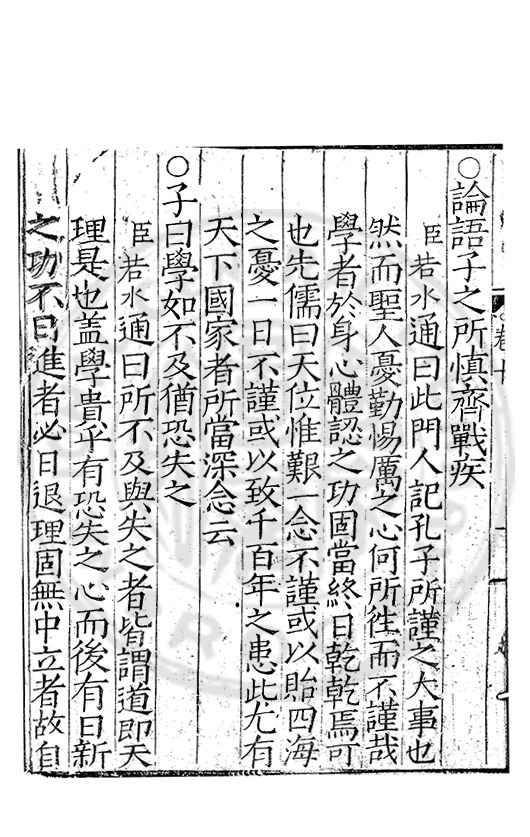 ○論語子之所慎齊戰疾
臣若水通曰此門人記孔子所謹之大事也
然而聖人憂勤惕厲之心何所徃而不謹哉
學者於身心體認之功固當終日乾乾焉可
也先儒曰天位惟艱一念不謹或以貽四海
之憂一日不謹或以致千百年之患此尤有
天下國家者所當深念云
○子曰學如不及猶恐失之
臣若水通曰所不及與失之者皆謂道即天
理是也盖學貴乎有恐失之心而後有日新
之功不日進者必日退理固無中立者故自